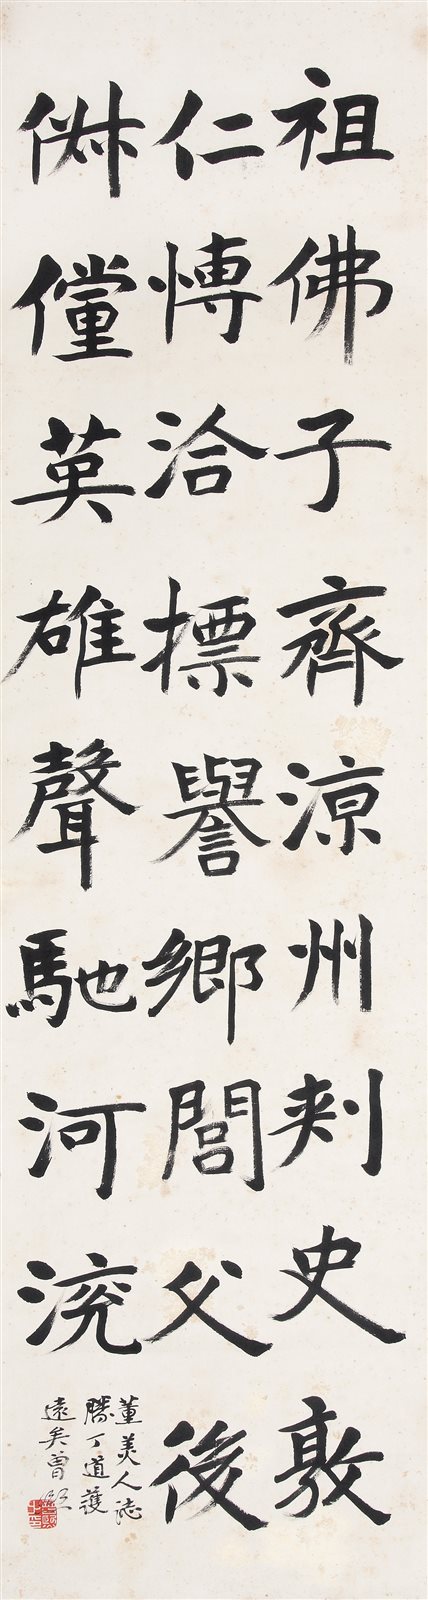 祖佛子齊涼州刾史敦
仁愽洽摽譽鄉閭父後
俶儻英雄聲馳河渷
董美人誌
勝丁道護
遠矣曾熙